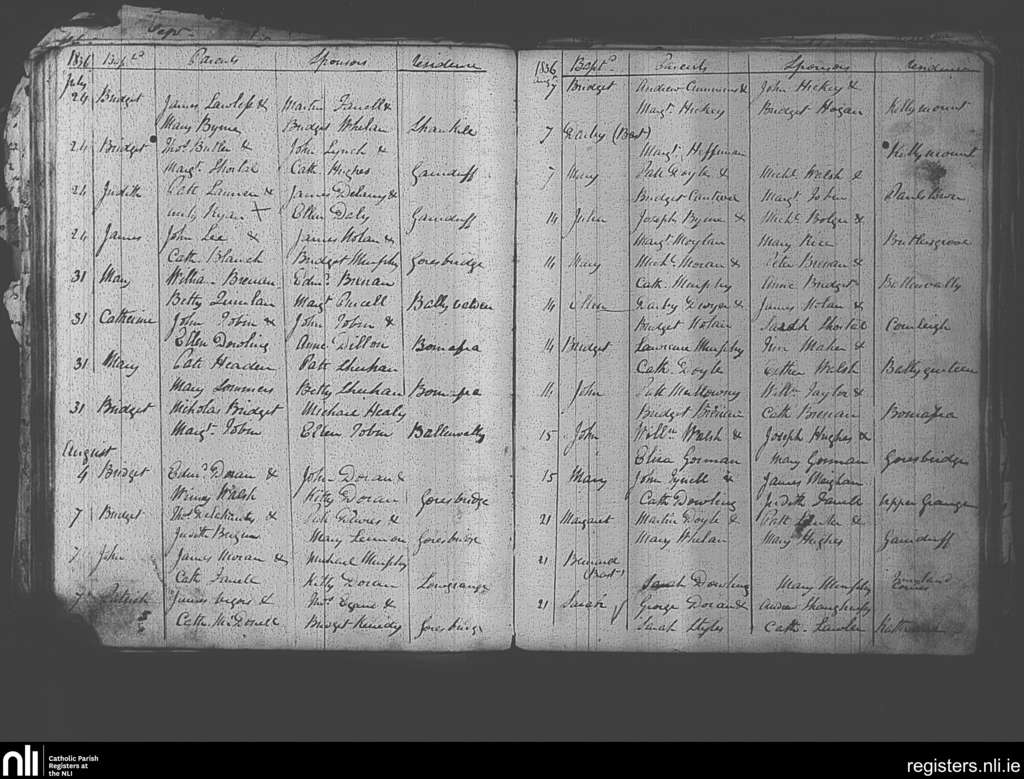 1836 Bapt.d Parents Sponsors Residence
July
24 Bridget James Lawless & Martin Farrell &
Mary Byrne Bridget Whelan Shankill
24 Bridget Thos Butler & John Lynch &
Margt. Shortal Cath Hughes Garrduff
24 Judith Patt Lennon & James Delaney &
Ryan + Ellen Daly Garrduff
24 James John Lee & James Nolan &
Cath. Blanch Bridget Murphy Goresbridge
31 Mary William Brenan Edmd. Brenan
Betty Quinlan Margt Purcell
31 Catherine John Tobin & John Tobin &
Ellen Dowling Anne Dillon Bornafea
31 Mary Patt Headen Patt Sheehan
Mary Sommers Betty Sheehan Bornafea
31 Bridget Nicholas Bridget Michael Healy
Margt. Tobin Ellen Tobin Ballinvally
August
4 Bridget Edmd. Doran & John Doran &
Winny Walsh Kitty Doran Goresbridge
7 Bridget Thos &
Judith Bergin Mary Lennon Goresbridge
7 John James Moran & Michael Murphy
Cath Farrell Kitty Doran Lowgrange
7 Patrick James &
Cath McDonell Bridget Kenedy Goresbridge
1836 Bapt.d Parents Sponsors Residence
Augt
7 Bridget Andrew Cummins & John Hickey &
Margt. Hickey Bridget Hogan Kellymount
7 Darby (Bast)
Margt. Heffernan Kellymount
7 Mary Patt Doyle & Michl. Walsh &
Bridget Cantwell Margt. Tobin
14 Julia Joseph Byrne & Michl. Bolger &
Margt. Moylan Mary Rice Butlersgrove
14 Mary Michl. Moran & Peter Brenan &
Cath. Murphy Anne Bridget Ballinvally
14 Ellen Darby Dwyer & James Nolan &
Bridget Nolan Sarah Shortal Coonleigh
14 Bridget Lawrence Murphy Maher &
Cath. Doyle Esther Walsh Ballyquirteen
14 John Patt Muldowney Willm. Taylor &
Bridget Brenan Cath Brenan Bornafea
15 John Willm Walsh & Joseph Hughes &
Eliza Gorman Mary Gorman Goresbridge
15 Mary John Tynell & James Meighan
Cath Dowling Judith Farrell Upper Grange
21 Margaret Martin Doyle & Patt &
Mary Whelan Mary Hughes Garrduff
21 Bernard
(Bast) Sarah Dowling Mary Murphy
21 Sarah George Doran & Andrew Shaughnessy
Sarah Styles Cath. Lawler
nli Catholic Parish
Registers at
the NLI
registers.nli.ie